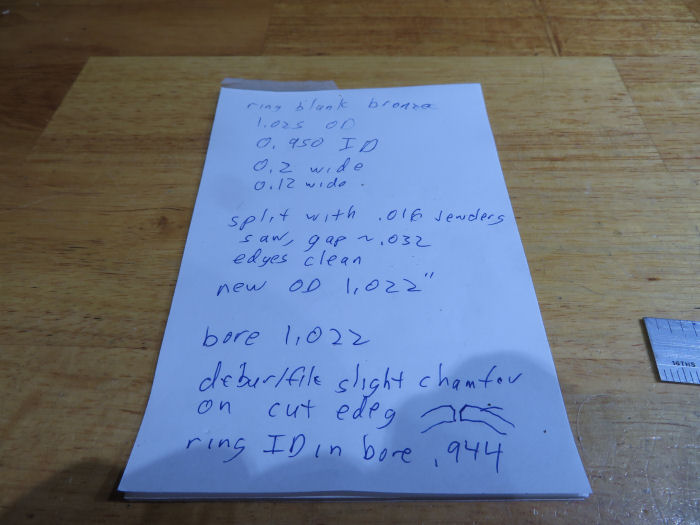 ring blank bronze
1.025 OD
0.950 ID
0.2 wide
0.12 wide.
split with .016 jenders
saw, gap ~.032
edges clean
new OD 1,022"
bore 1,022
debur/file slight chamfer
on cut edeg
ring ID in bore .944
16THS